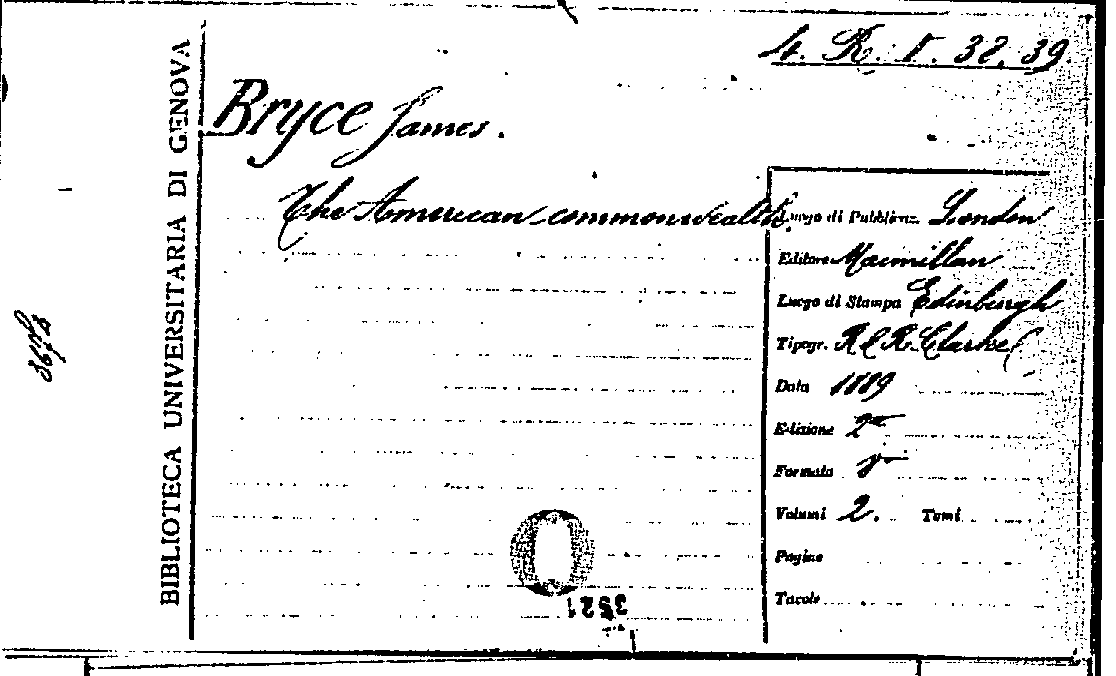 4. R. V. 38. 39
Bryce James.
The American commonwealth.
BIBLIOTECA UNIVERSITARIA DI GENOVA
Luogo di Pubblicaz. London
Editore Macmillan
Luogo di Stampa Edinburgh
Tipogr. R & R. Clarke
Data 1889
Edizione 2ª
Formato 8°
Volumi 2. Tomi
Pagine
Tavole
3521